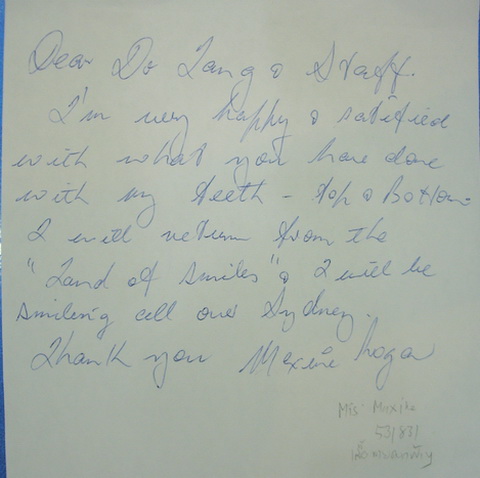 Dear Dr Lang & Staff.
I'm very happy & satisfied
with what you have done
with my teeth - top & Bottom
I will return from the
"Land of Smiles" & I will be
smiling all over Sydney.
Thank you Maxine
Mis Maxine
53/83/